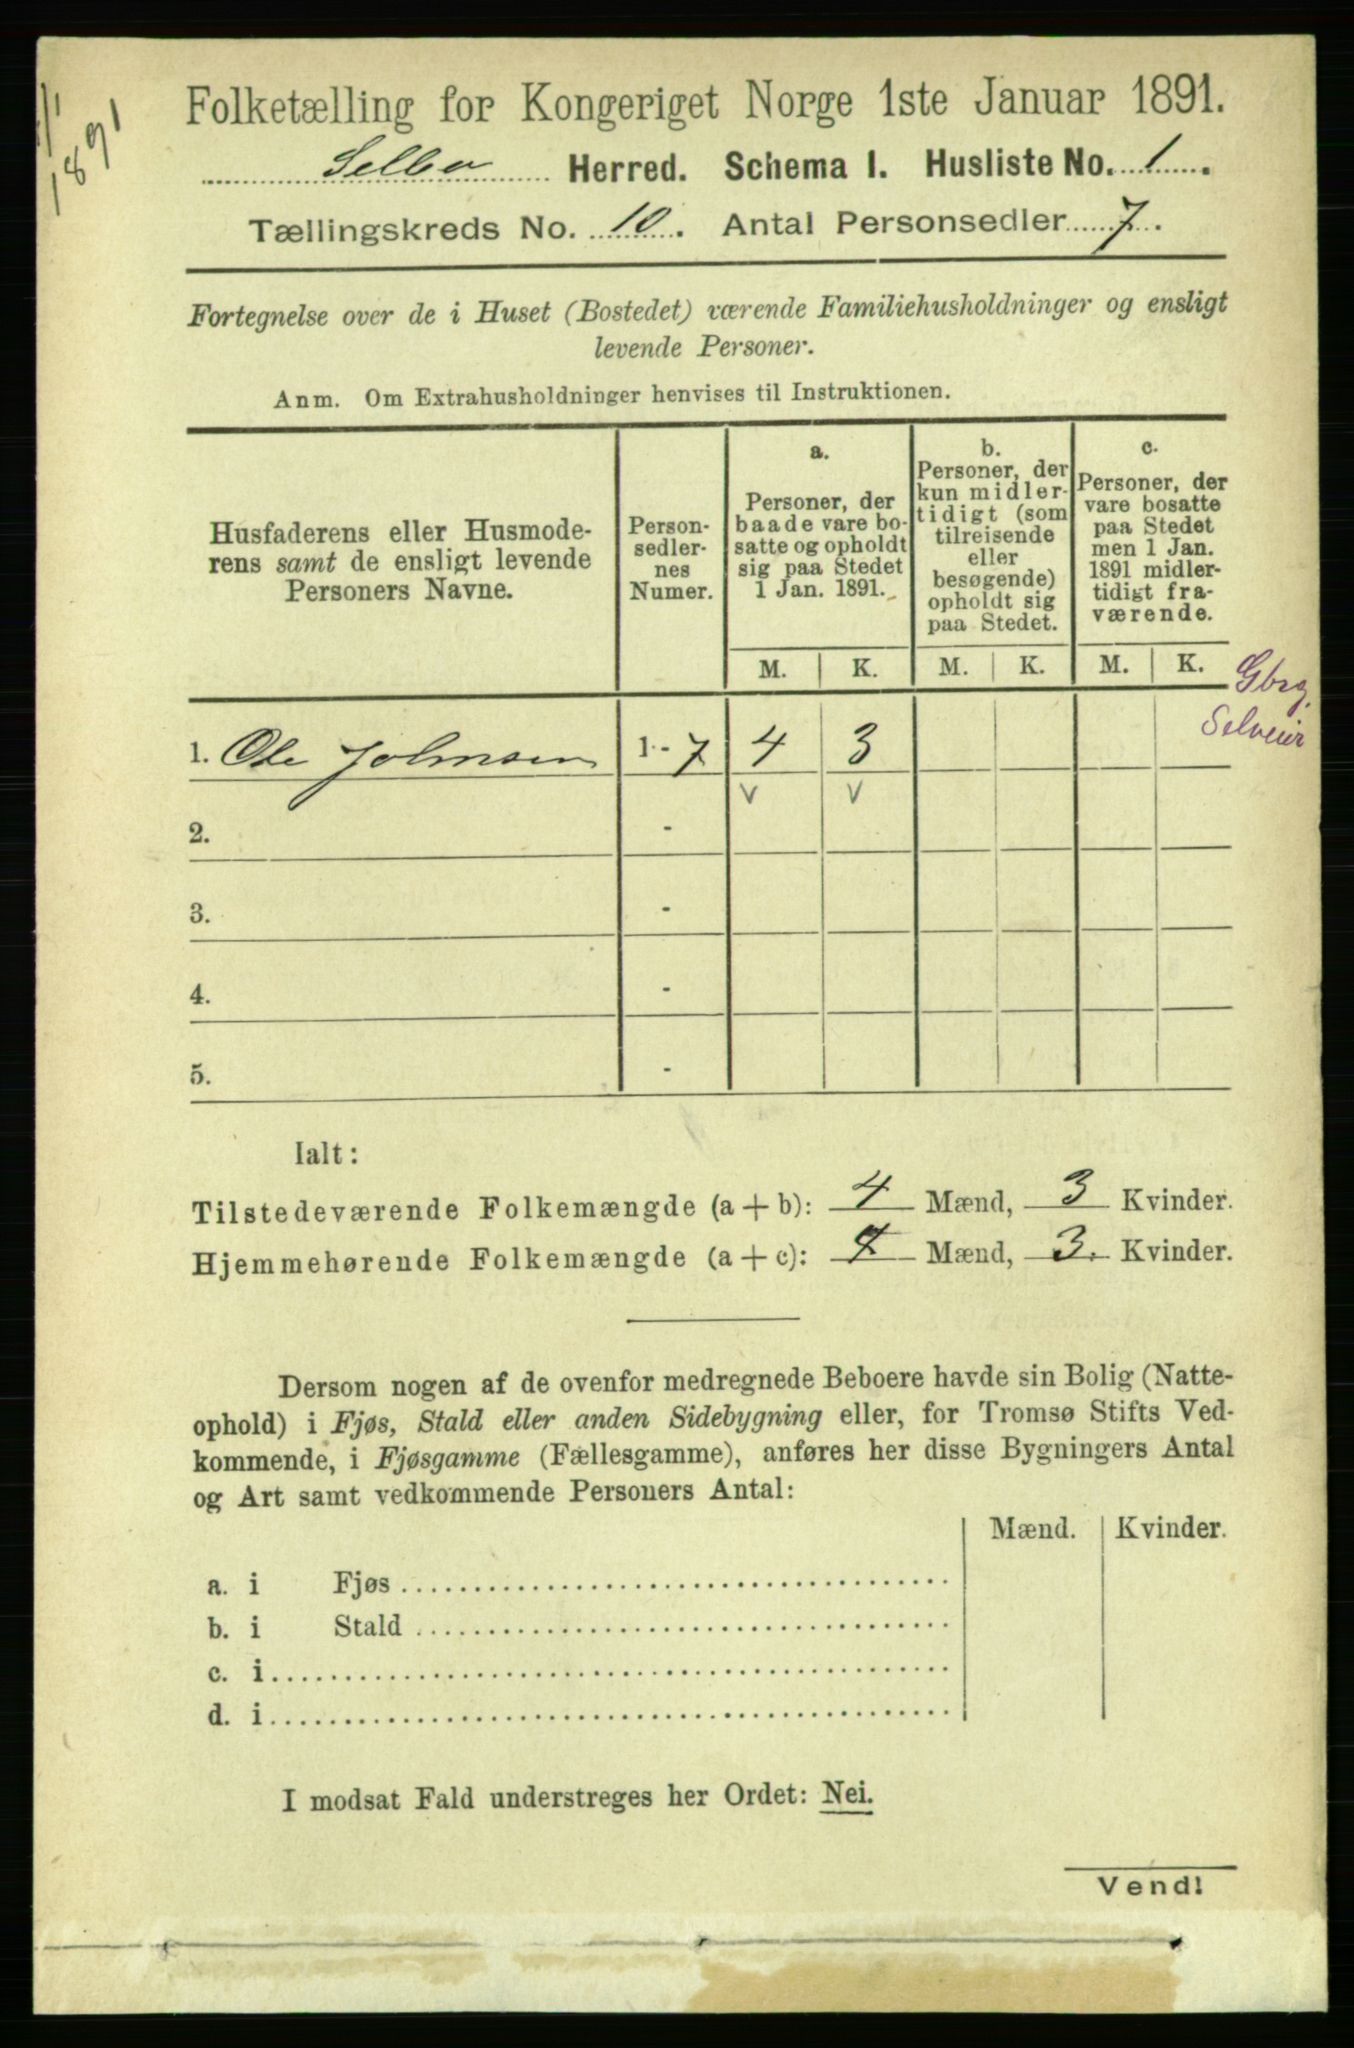 1/1
1891
Folketælling for Kongeriget Norge 1ste Januar 1891.
Selbu Herred. Schema I. Husliste No. 1.
Tællingskreds No. 10. Antal Personsedler 7.
Fortegnelse over de i Huset (Bostedet) værende Familiehusholdninger og ensligt
levende Personer.
Anm. Om Extrahusholdninger henvises til Instruktionen.
Husfaderens eller Husmode-
rens samt de ensligt levende
Personers Navne.
Person-
sedler-
nes
Numer.
a.
Personer, der
baade vare bo-
satte og opholdt
sig paa Stedet
1 Jan. 1891.
b.
Personer, der
kun midler-
tidigt (som
tilreisende
eller
besøgende)
opholdt sig
paa Stedet.
c.
Personer, der
vare bosatte
paa Stedet
men 1 Jan.
1891 midler-
tidigt fra-
værende.
M. K. M. K. M. K.
Gbrg.
Selveier
1. Ole Johnsen 1 - 7 4 3
2. -
3. -
4. -
5. -
Ialt:
Tilstedeværende Folkemængde (a + b): 4 Mænd, 3 Kvinder.
Hjemmehørende Folkemængde (a + c): 4 Mænd, 3. Kvinder.
Dersom nogen af de ovenfor medregnede Beboere havde sin Bolig (Natte-
ophold) i Fjøs, Stald eller anden Sidebygning eller, for Tromsø Stifts Ved-
kommende, i Fjøsgamme (Fællesgamme), anføres her disse Bygningers Antal
og Art samt vedkommende Personers Antal:
Mænd. Kvinder.
a. i Fjøs
b. i Stald
c. i
d. i
I modsat Fald understreges her Ordet: Nei.
Vend!